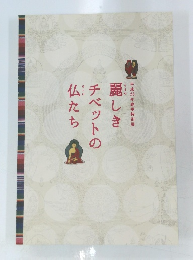 麗しき
チベットの
仏たち